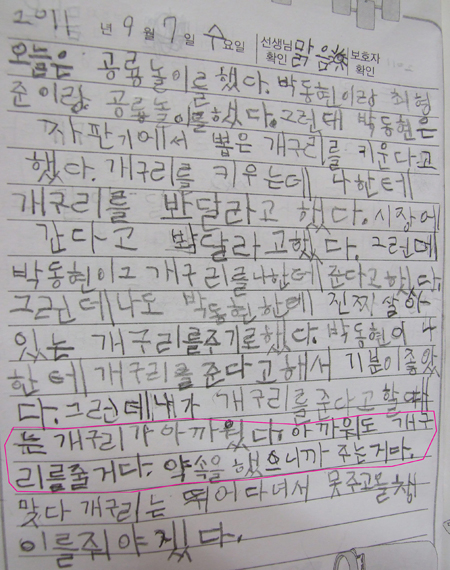 2011 년 9 월 7 일 수요일 선생님 확인 맑음 보호자 확인
오늘은 공룡놀이를 했다. 박동현이랑 최형
준이랑 공룡놀이를했다.그런데 박동현은
짜판기에서 뽑은 개구리를 키운다고
했다. 개구리를 키우는데 나한테
개구리를 봐달라고 했다. 시장에
간다고 봐달라고했다. 그런데
박동현이그 개구리를나한테준다고했다.
그런데나도 박동현한테 진찌살아
있는 개구리를주기로했다. 박동현이 나
한테 개구리를 준다고해서 기분이좋았
다. 그런데내가 개구리를준다고할때
는 개구리가아까웠다. 아까워도 개구
리를줄거다. 약속을 했으니까 주는거다.
맞다 개구리는 뛰어다녀서 못주고올챙
이를줘야겠다.